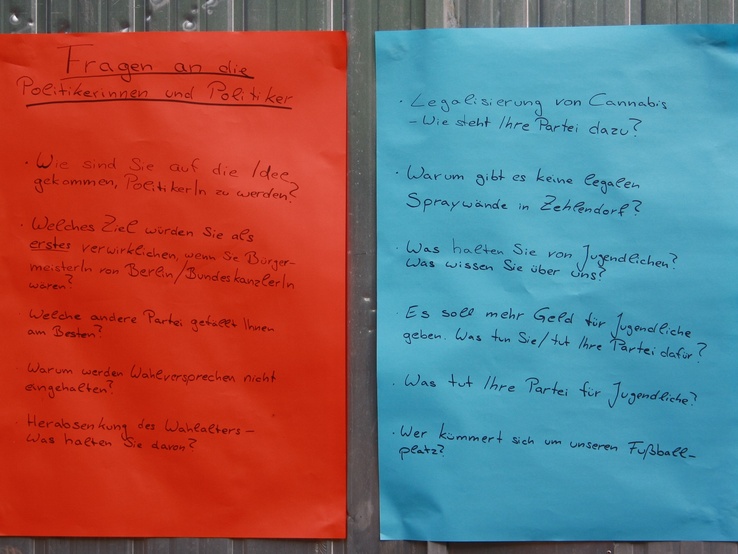 Fragen an die
Politikerinnen und Politiker
· Wie sind Sie auf die Idee
gekommen, PolitikerIn zu werden?
· Welches Ziel würden Sie als
erstes verwirklichen, wenn Sie Bürger-
meisterIn von Berlin/BundeskanzlerIn
wären?
· Welche andere Partei gefällt Ihnen
am Besten?
· Warum werden Wahlversprechen nicht
eingehalten?
· Herabsenkung des Wahlalters –
Was halten Sie davon?
· Legalisierung von Cannabis
– Wie steht Ihre Partei dazu?
· Warum gibt es keine legalen
Spraywände in Zehlendorf?
· Was halten Sie von Jugendlichen?
Was wissen Sie über uns?
· Es soll mehr Geld für Jugendliche
geben. Was tun Sie/tut Ihre Partei dafür?
· Was tut Ihre Partei für Jugendliche?
· Wer kümmert sich um unseren Fußball-
platz?